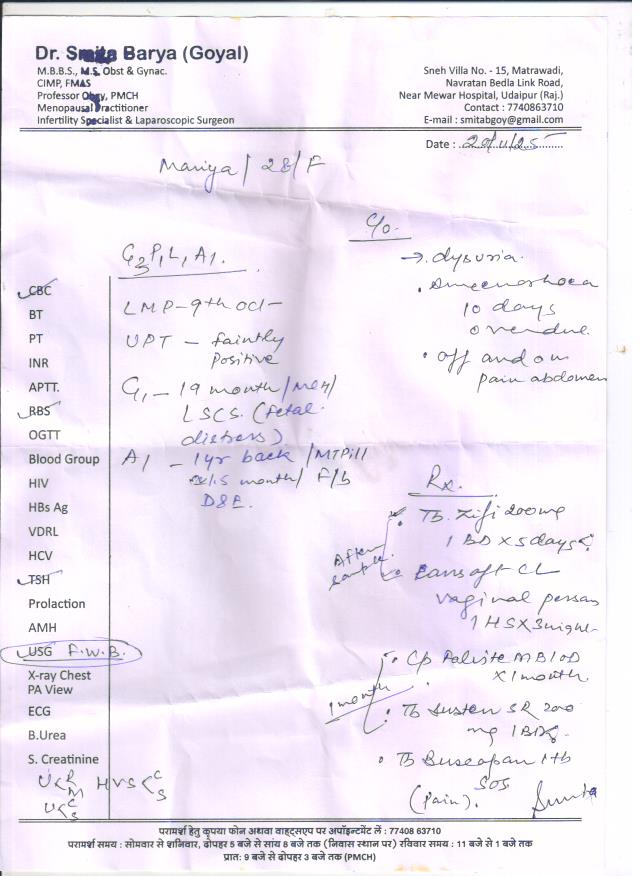 Dr. Smita Barya (Goyal)
M.B.B.S., M.S. Obst & Gynac.
CIMP, FMAS
Professor Obgy, PMCH
Menopausal Practitioner
Infertility Specialist & Laparoscopic Surgeon
Sneh Villa No. - 15, Matrawadi,
Navratan Bedla Link Road,
Near Mewar Hospital, Udaipur (Raj.)
Contact : 7740863710
E-mail : smitabgoy@gmail.com
Date : 20/11/25
Mariya / 28/F
G3P1L1A1
LMP - 9th Oct
UPT - faintly
positive
G1 - 19 month / MCH /
LSCS. (fetal
distress)
A1 - 1yr back / MTPill
1.5 month / F/b
D&E.
C/o.
→ dysuria
• Ameenorhoea
10 days
overdue
• off and on
pain abdomen
CBC
BT
PT
INR
APTT.
RBS
OGTT
Blood Group
HIV
HBs Ag
VDRL
HCV
TSH
Prolaction
AMH
USG F.W.B.
X-ray Chest
PA View
ECG
B.Urea
S. Creatinine
U<R M HVS<C S
U<C S
Rx.
After sample.
• Tb. Zifi 200mg
1 BD x 5 days
• Cansoft CL
vaginal
1 HS x 3 night
1 month
• Cp MB 1 OD
x 1 month.
• Tb Susten SR 200
mg 1 BD
• Tb Buscopan 1 tb
SOS
(Pain).
Smita
परामर्श हेतु कृपया फोन अथवा वाहट्सएप पर अपॉइन्टमेंट लें : 77408 63710
परामर्श समय : सोमवार से शनिवार, दोपहर 5 बजे से सांय 8 बजे तक (निवास स्थान पर) रविवार समय : 11 बजे से 1 बजे तक
प्रातः 9 बजे से दोपहर 3 बजे तक (PMCH)